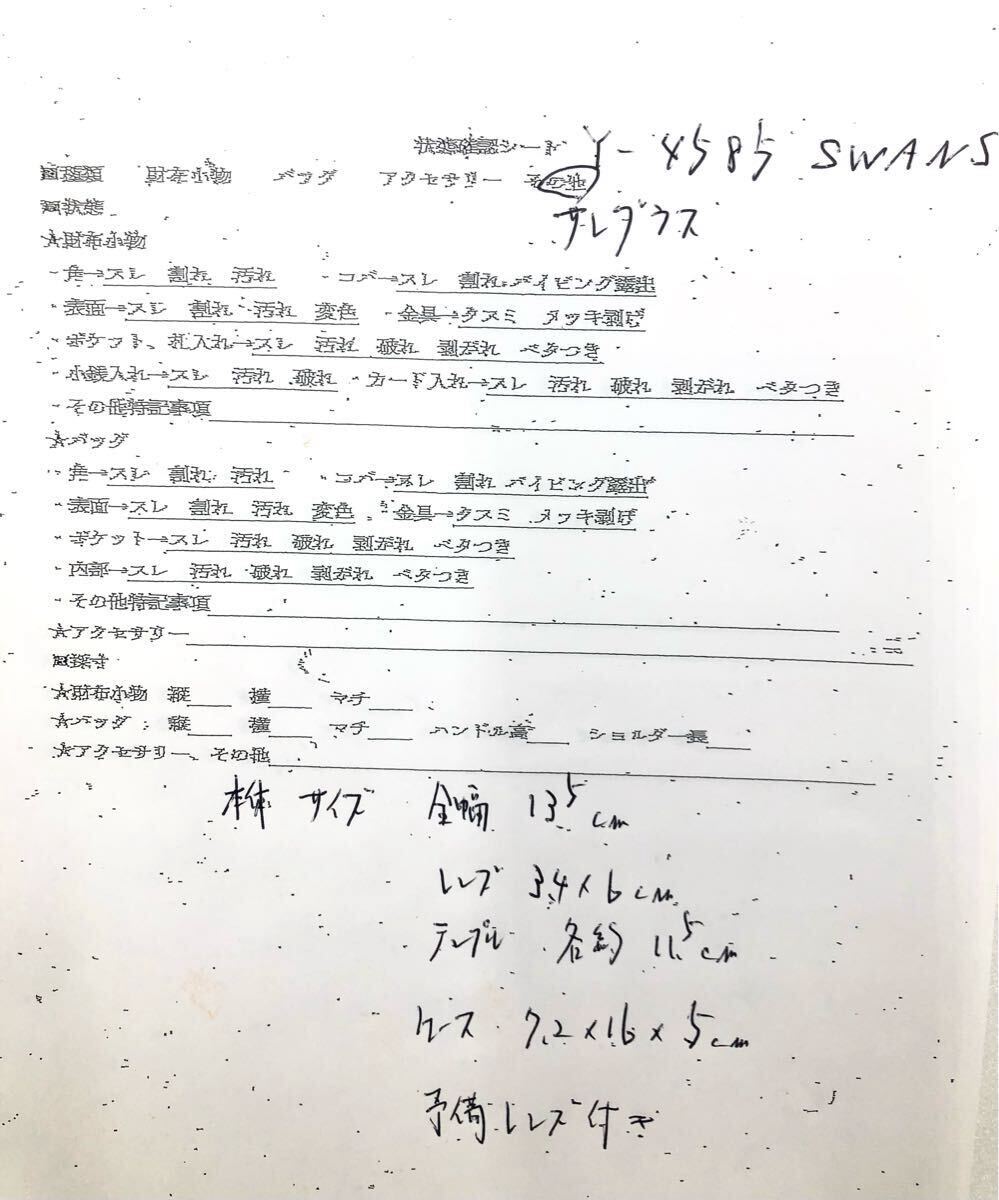 状態確認シート Y-4585 SWANS
■種類 財布小物 バッグ アクセサリー その他
サングラス
■状態
★財布小物
・角→スレ 割れ 汚れ ・コバ→スレ 割れ パイピング露出
・表面→スレ 割れ 汚れ 変色 ・金具→クスミ メッキ剥げ
・ポケット、札入れ→スレ 汚れ 破れ 剥がれ ベタつき
・小銭入れ→スレ 汚れ 破れ ・カード入れ→スレ 汚れ 破れ 剥がれ ベタつき
・その他特記事項
★バッグ
・角→スレ 割れ 汚れ ・コバ→スレ 割れ パイピング露出
・表面→スレ 割れ 汚れ 変色 ・金具→クスミ メッキ剥げ
・ポケット→スレ 汚れ 破れ 剥がれ ベタつき
・内部→スレ 汚れ 破れ 剥がれ ベタつき
・その他特記事項
★アクセサリー
■採寸
★財布小物 縦 横 マチ
★バッグ 縦 横 マチ ハンドル高 ショルダー長
★アクセサリー、その他
本体 サイズ 全幅 13.5cm
レンズ 3.4×6cm
テンプル 各約 11.5cm
ケース 7.2×16×5cm
予備レンズ付き